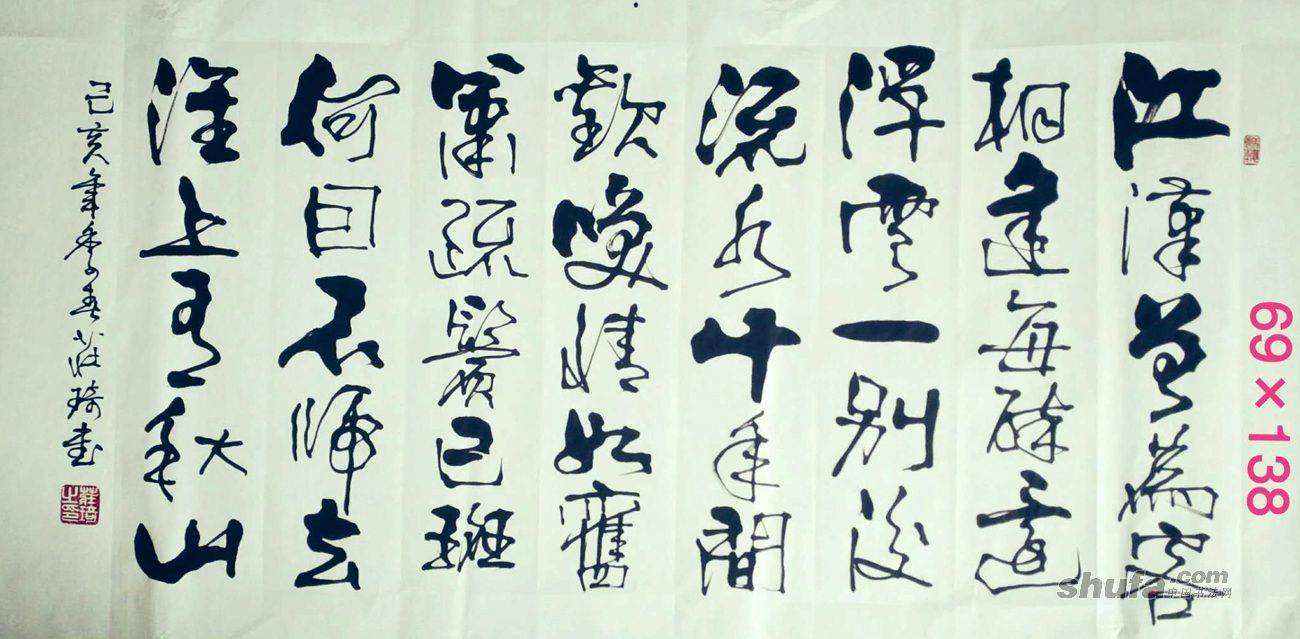 江漢曾為客
相逢每醉還
浮雲一別後
流水十年間
歡咲情如舊
蕭疏鬢已斑
何因不歸去
淮上有秋山
己亥年季之春莊琦書
莊琦之印
69×138
shufa.com
中国书法网